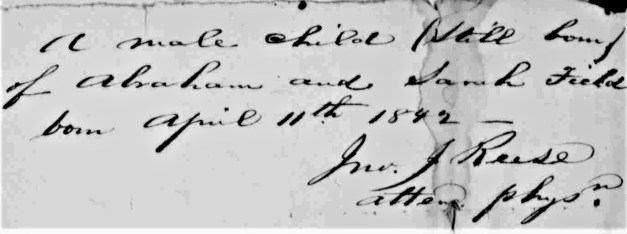 A male child (Still born)
of Abraham and Sarah Field
born April 11th 1842 –
Jno. J Reese
atten. physn.